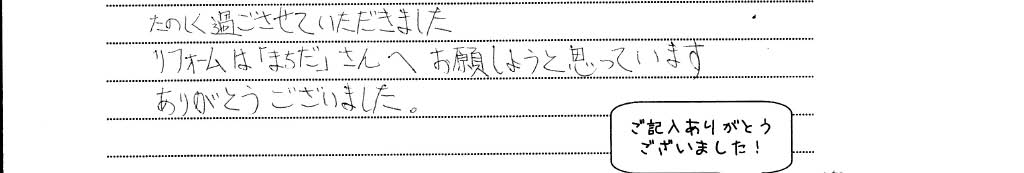 たのしく過ごさせていただきました
リフォームは「まちだ」さんへお願しようと思っています
ありがとうございました。
ご記入ありがとう
ございました!